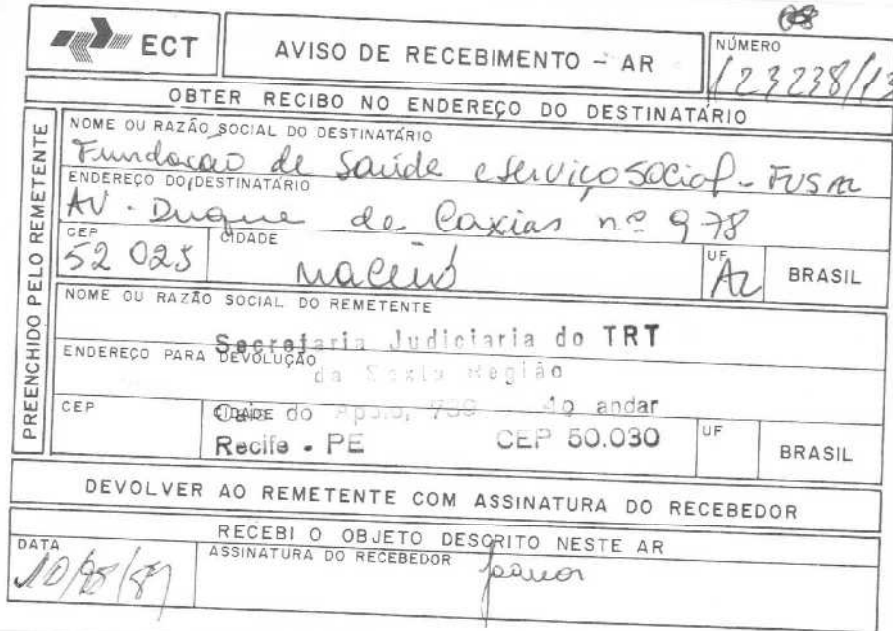 ECT
AVISO DE RECEBIMENTO - AR
NÚMERO
123238/13
OBTER RECIBO NO ENDEREÇO DO DESTINATÁRIO
PREENCHIDO PELO REMETENTE
NOME OU RAZÃO SOCIAL DO DESTINATÁRIO
Fundação de Saúde e Serviço Social - FUSAL
ENDEREÇO DO DESTINATÁRIO
AV. Duque de Caxias nº 978
CEP
52 025
CIDADE
Maceió
UF
AL
BRASIL
NOME OU RAZÃO SOCIAL DO REMETENTE
Secretaria Judiciaria do TRT
ENDEREÇO PARA DEVOLUÇÃO
da Sexta Região
CEP
CIDADE
Cais do Apolo, 739 4o andar
Recife - PE CEP 50.030
UF
BRASIL
DEVOLVER AO REMETENTE COM ASSINATURA DO RECEBEDOR
RECEBI O OBJETO DESCRITO NESTE AR
DATA
ASSINATURA DO RECEBEDOR